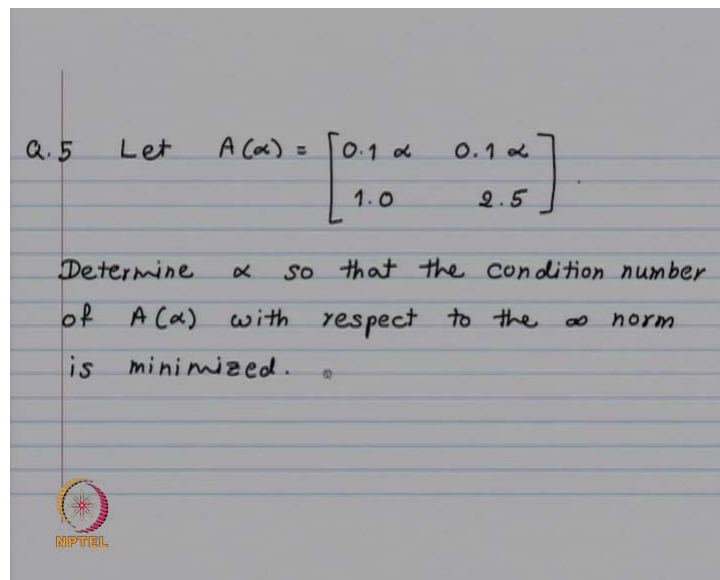 Q.5 Let A(α) = [0.1 α 0.1 α
1.0 2.5].
Determine α so that the condition number
of A(α) with respect to the ∞ norm
is minimized.
NPTEL